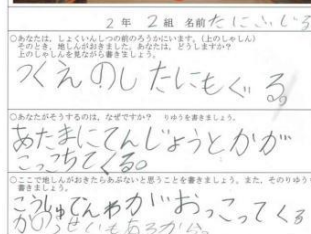 2 年 2 組 名前
○あなたは、しょくいんしつの前のろうかにいます。(上のしゃしん)
そのとき、地しんがおきました。あなたは、どうしますか？
上のしゃしんを見ながら書きましょう。
つくえのしたにもぐる
○あなたがそうするのは、なぜですか？ りゆうを書きましょう。
あたまにてんじょうとかが
こっちてくる。
○ここで地しんがおきたらあぶないと思うことを書きましょう。また、そのりゆうも
書きましょう。
こうしゅでんわがおっこってくる
かのうせいもあるから。